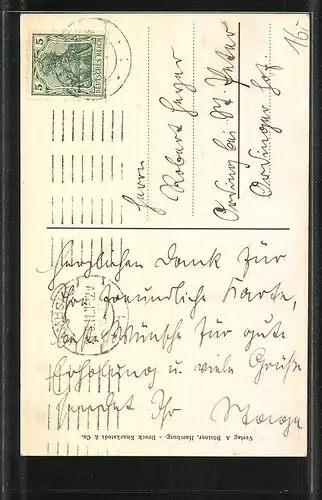 16.-
5 DEUTSCHES REICH 5
Herrn
Robert Heger
Ording bei St. Peter
Ordinger Hof
Herzlichen Dank für
Ihre freundliche Karte,
beste Wünsche für gute
Erholung u. viele Grüße
sendet Ihr
Verlag A Büttner, Hamburg. - Druck Knackstedt & Co.